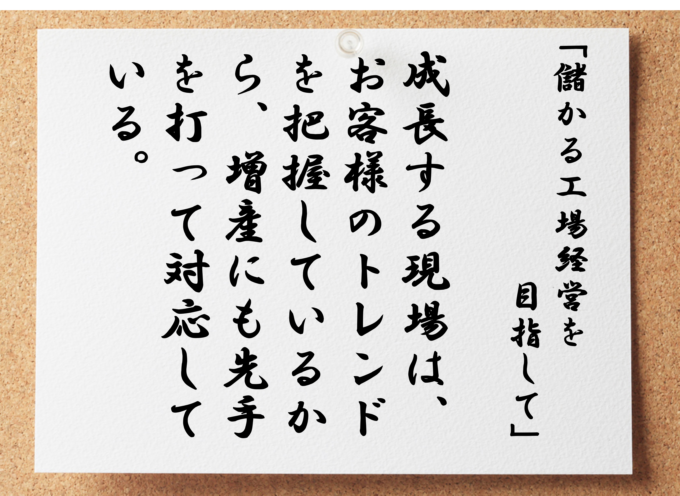 「儲かる工場経営を
目指して」
成長する現場は、
お客様のトレンド
を把握しているか
ら、増産にも先手
を打って対応して
いる。